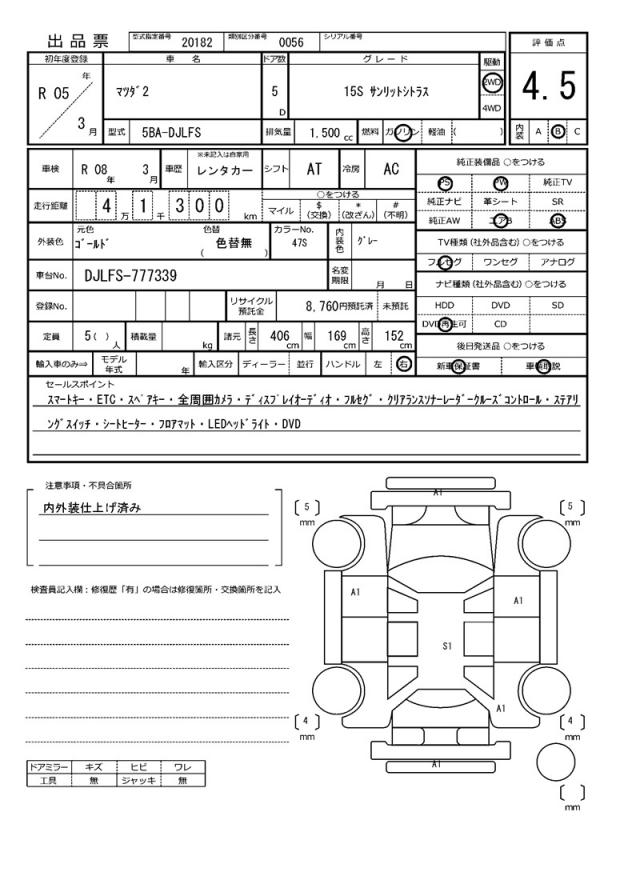 出品票 型式指定番号 20182 類別区分番号 0056 シリアル番号
評価点
4.5
内装 A B C
初年度登録 車名 ドア数 グレード 駆動
R 05 年 3 月 マツダ2 5 D 15S サンリットシトラス 2WD 4WD
型式 5BA-DJLFS 排気量 1.500 cc 燃料 ガソリン 軽油 ( )
車検 R 08 年 3 月 車歴 ※未記入は自家用 レンタカー シフト AT 冷房 AC
走行距離 4 万 1 千 3 0 0 km ○をつける マイル $ (交換) * (改ざん) # (不明)
外装色 元色 ゴールド 色替 ( 色替無 ) カラーNo. 47S 内装色 グレー
車台No. DJLFS-777339 名変期限 月 日
登録No. リサイクル預託金 8,760円預託済 未預託
定員 5( ) 人 積載量 kg 諸元 長さ 406 cm 幅 169 cm 高さ 152 cm
輸入車のみ⇒ モデル年式 年 輸入区分 ディーラー 並行 ハンドル 左 右
純正装備品 ○をつける
PS PW 純正TV
純正ナビ 革シート SR
純正AW エアB ABS
TV種類 (社外品含む) ○をつける
フルセグ ワンセグ アナログ
ナビ種類 (社外品含む) ○をつける
HDD DVD SD
DVD再生可 CD
後日発送品 ○をつける
新車保証書 車輌取説
セールスポイント
スマートキー・ETC・スペアキー・全周囲カメラ・ディスプレイオーディオ・フルセグ・クリアランスソナーレーダークルーズコントロール・ステアリ
ングスイッチ・シートヒーター・フロアマット・LEDヘッドライト・DVD
注意事項・不具合箇所
内外装仕上げ済み
検査員記入欄:修復歴「有」の場合は修復箇所・交換箇所を記入
ドアミラー キズ ヒビ ワレ
工具 無 ジャッキ 無
A1
[ 5 ] mm
[ 5 ] mm
A1
A1
S1
A1
[ 4 ] mm
[ 4 ] mm
A1
[ ] mm